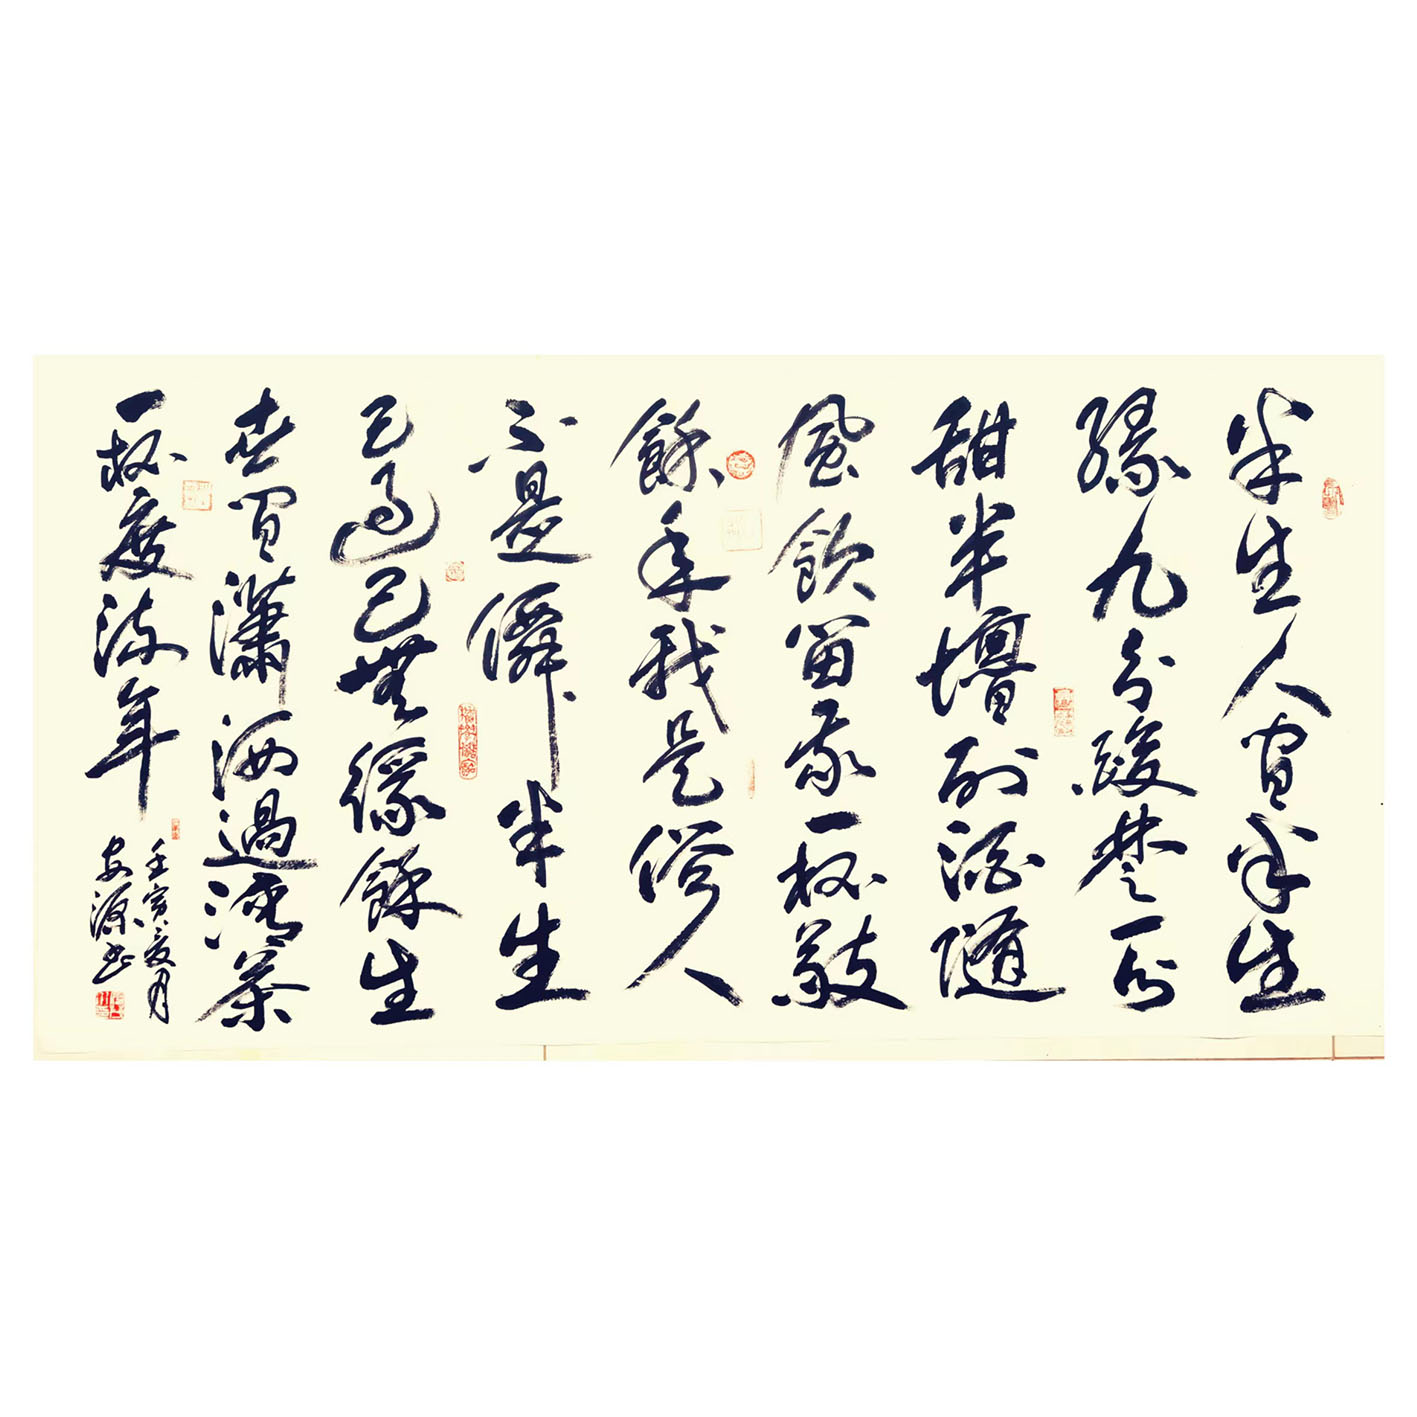 半生人間半生
緣九分酸楚一分
甜半壇烈酒隨
風飲留一杯敬
餘年我是俗人
不是僊半生
已過已無緣餘生
世間瀟洒過茶
一杯度流年
壬寅亥月
安源书